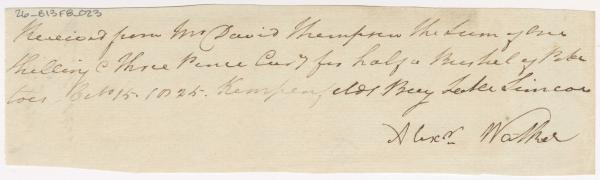 26-B13F8-023
Received from Mr David Thompson the Sum of One
Shilling & Three Pence Curry for half a Bushel of Pota
toes. 15. 1825. Kempenfeldt Bay Lake Simcoe
Alexr. Walker